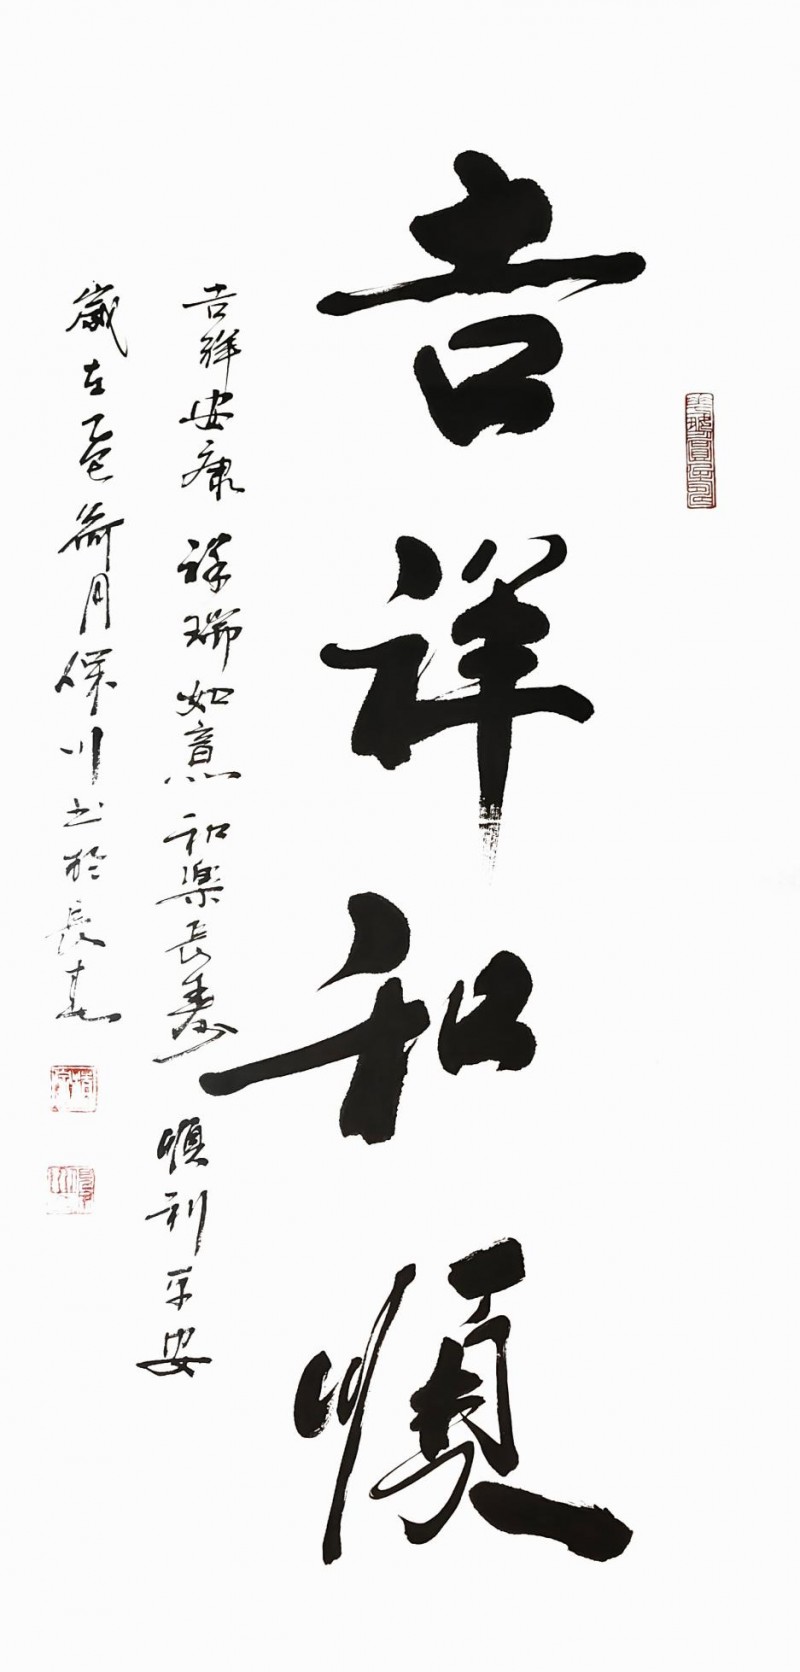 吉祥和順
吉祥安康 祥瑞如意 和樂長壽 順利平安
歲在乙巳荷月保川书於長春